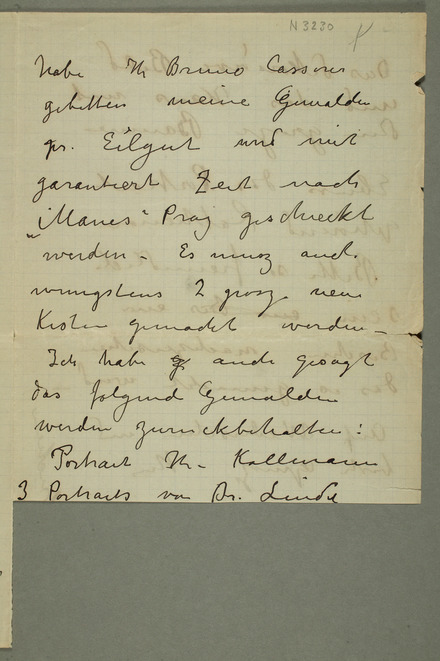 N 3230
habe Hr Bruno Cassirer
gebitten meine Gemalden
pr. Eilgut und mit
garantiert Zeit nach
"Manes" Prag geschieckt
werden - Es musz auch
wenigstens 2 grosze neue
Kisten gemacht werden -
Ich habe auch gesagt
das folgend Gemalden
werden zurückbehalten:
Portrait Hr - Kollmann
3 Portraits von Dr. Linde